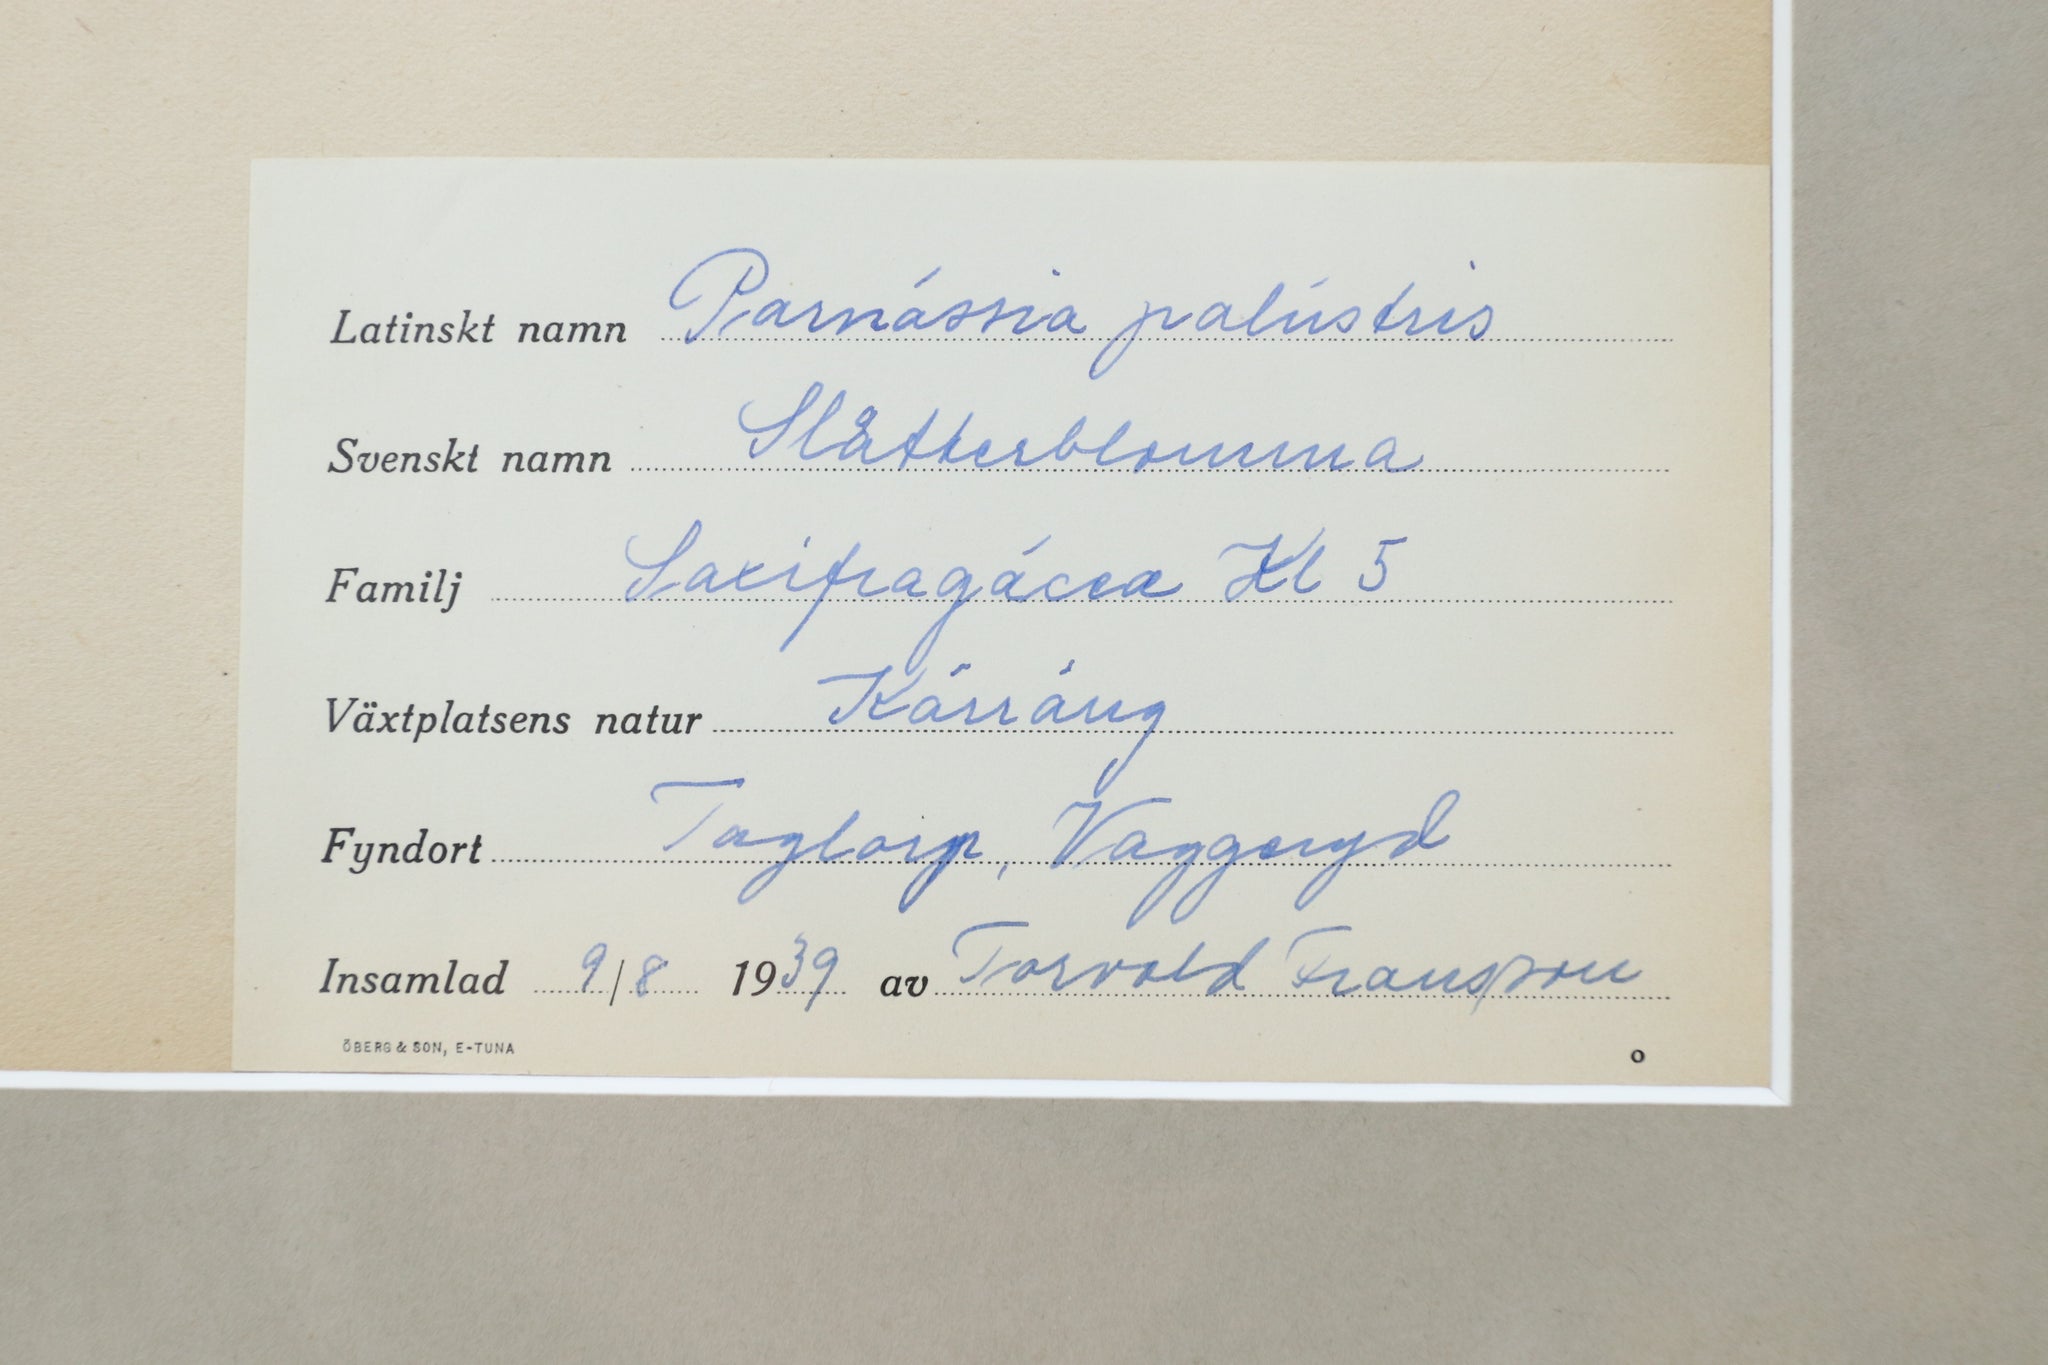 Latinskt namn Parnássia palústris
Svenskt namn Slåtterblomma
Familj Saxifragácea Kl 5
Växtplatsens natur Kärräng
Fyndort Taglarp, Vaggeryd
Insamlad 9/8 1939 av Torvald Fransson
ÖBERG & SON, E-TUNA
o